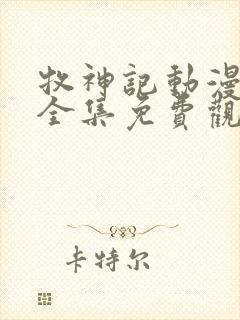 牧神記動漫
全集免費觀
卡特尔